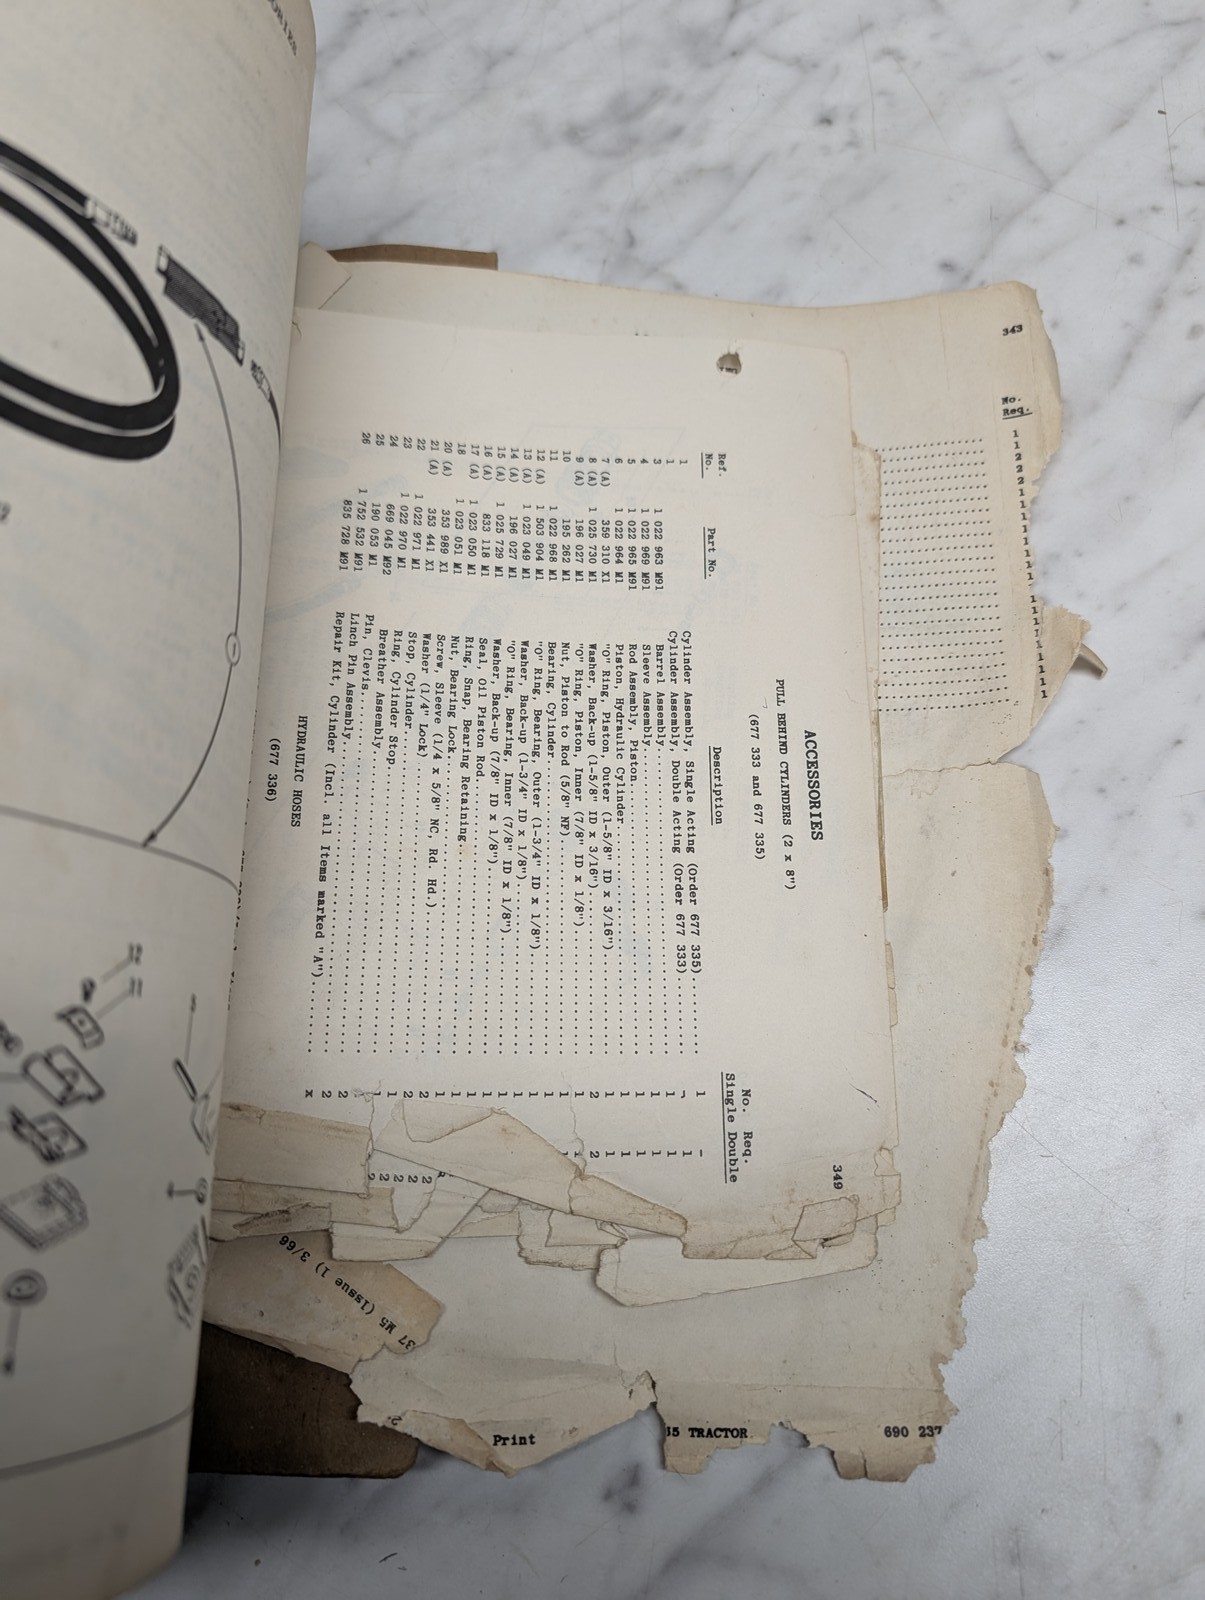 349
ACCESSORIES
PULL BEHIND CYLINDERS (2 x 8")
(677 333 and 677 335)
Ref. No. Part No. Description No. Req. Single Double
1 Cylinder Assembly, Single Acting (Order 677 335) 1 -
1 Cylinder Assembly, Double Acting (Order 677 333) 1
3 1 022 963 M91 Barrel Assembly 1 1
4 1 022 969 M91 Sleeve Assembly 1 1
5 1 022 965 M91 Rod Assembly, Piston 1 1
6 1 022 964 M1 Piston, Hydraulic Cylinder 1 1
7 (A) 359 310 X1 "O" Ring, Piston, Outer (1-5/8" ID x 3/16") 1 1
8 (A) 1 025 730 M1 Washer, Back-up (1-5/8" ID x 3/16") 2 2
9 (A) 196 027 M1 "O" Ring, Piston, Inner (7/8" ID x 1/8") 1
10 195 262 M1 Nut, Piston to Rod (5/8" NF) 1
11 1 022 968 M1 Bearing, Cylinder 1
12 (A) 1 503 904 M1 "O" Ring, Bearing, Outer (1-3/4" ID x 1/8") 1
13 (A) 1 023 049 M1 Washer, Back-up (1-3/4" ID x 1/8") 1
14 (A) 196 027 M1 "O" Ring, Bearing, Inner (7/8" ID x 1/8") 1
15 (A) 1 025 729 M1 Washer, Back-up (7/8" ID x 1/8") 1
16 (A) 833 118 M1 Seal, Oil Piston Rod 1
17 (A) 1 023 050 M1 Ring, Snap, Bearing Retaining 1
18 1 023 051 M1 Nut, Bearing Lock 1
20 (A) 353 989 X1 Screw, Sleeve (1/4 x 5/8" NC, Rd. Hd.) 1
21 (A) 353 441 X1 Washer (1/4" Lock) 2 2
22 1 022 971 M1 Stop, Cylinder 2 2
23 1 022 970 M1 Ring, Cylinder Stop 1 2
24 669 045 M92 Breather Assembly 1 2
25 190 053 M1 Pin, Clevis 2
26 1 752 532 M91 Linch Pin Assembly 2
835 728 M91 Repair Kit, Cylinder (Incl. all Items marked "A") x
HYDRAULIC HOSES
(677 336)
343
No.
Req.
1
1
2
2
2
1
1
1
1
1
1
1
1
1
1
1
37 M5 (Issue 1) 3/66
Print
35 TRACTOR
690 237
12
11
1